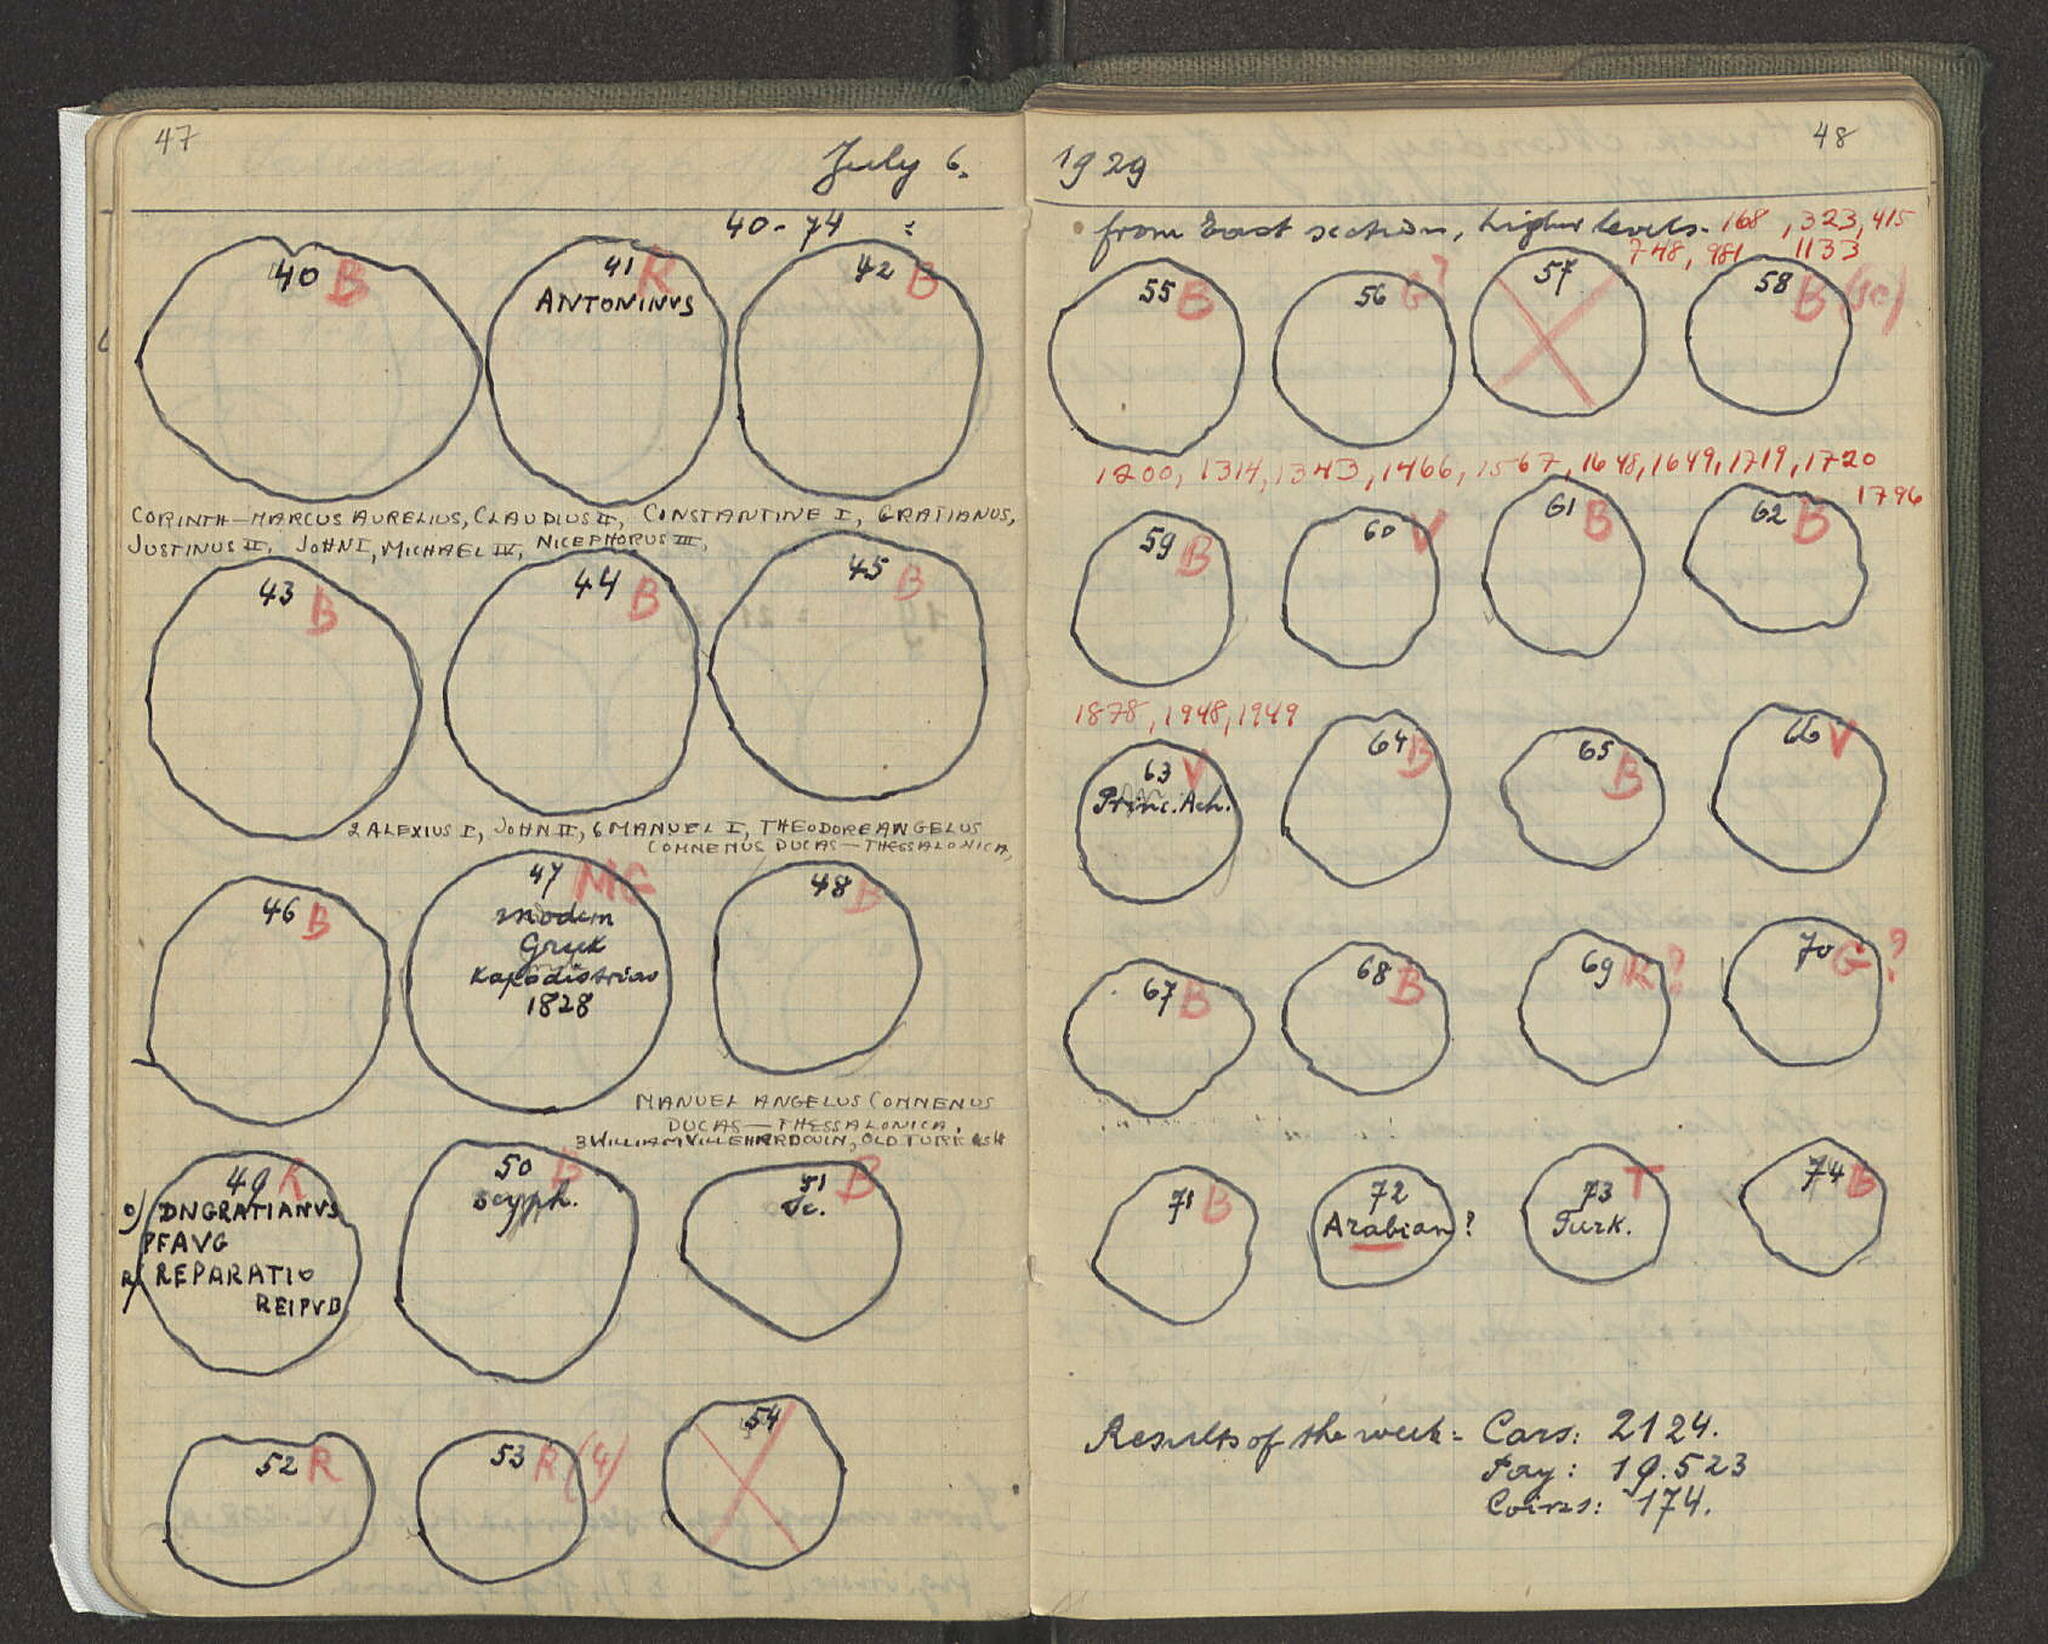 47
July 6.
40-74 :
40 B
41 R
ANTONINVS
42 B
CORINTH-MARCUS AURELIUS, CLAUDIUS II, CONSTANTINE I, GRATIANUS,
JUSTINUS II, JOHN I, MICHAEL IV, NICEPHORUS III,
43 B
44 B
45 B
2 ALEXIUS I, JOHN II, 6 MANUEL I, THEODORE ANGELUS
COMNENUS DUCAS-THESSALONICA,
46 B
47 MG
modern
Greek
Kapodistrias
1828
48 B
MANUEL ANGELUS COMNENUS
DUCAS-THESSALONICA.
3 WILLIAM VILLEHARDOUIN, OLD TURKISH
49 R
o) DNGRATIANVS
PFAVG
R) REPARATIO
REIPVB
50 B
scyph.
51 B
Sc.
52 R
53 R (4)
54
48
1929
from East section, higher levels. 168, 323, 415
748, 981 1133
55 B
56 G?
57
58 B (10)
1200, 1314, 1343, 1466, 1567, 1648, 1649, 1719, 1720
1796
59 B
60 V
61 B
62 B
1878, 1948, 1949
63 V
Princ. Ach.
64 B
65 B
66 V
67 B
68 B
69 R?
70 G?
71 B
72
Arabian?
73 T
Turk.
74 B
Results of the week: Cars: 2124.
Pay: 19.523
Coins: 174.